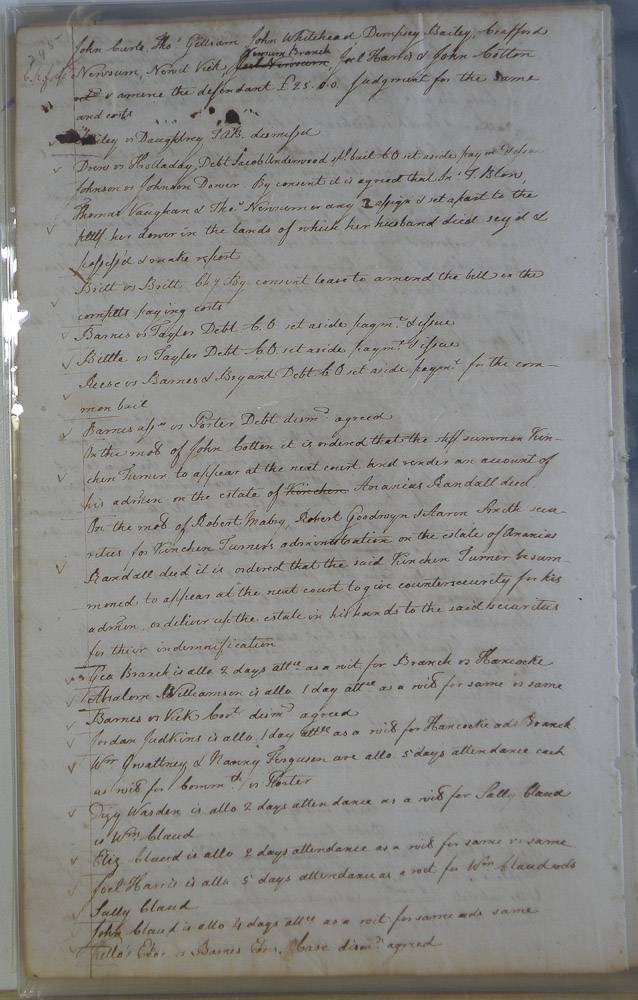 John Curle, Thos Gilliam John Whitehead Dempsey Bailey, Crafford
Newsum Branch
Newsum, Newit Vick, Joel Newsum Joel Harris & John Cotton
& amerce the defendant £25.0.0. Judgment for the same
and costs
Bailey vs Daughtrey TAB. dismissd
Drew vs Holladay Debt Jacob Underwood spl bail CO set aside paymt & issue
Johnson vs Johnson Dower By consent it is agreed that
Thomas Vaughan & Thos Newsum or any 2 assign & set apart to the
pltff her dower in the lands of which her husband died seiz'd &
possess'd & make report
Britt vs Britt Chy By consent leave to amend the bill on the
complts paying costs
Barnes vs Taylor Debt C.O set aside paymt & issue
Bittle vs Taylor Debt CO. set aside paymt & issue
Reese vs Barnes & Bryant Debt CO set aside paymt for the com-
mon bail
Barnes assee vs Porter Debt dismd agreed
On the mo of John Cotton it is ordered that the shff summon Kin-
chen Turner to appear at the next court and render an account of
his admōn on the estate of Kinchen Ananias Randall deced
On the mo of Robert Mabry, Robert Goodwyn & Aaron Smith secu-
rities for Kinchen Turner's administration on the estate of Ananias
Randall deced it is ordered that the said Kinchen Turner be sum-
moned to appear at the next court to give countersecurity for his
admōn or deliver up the estate in his hands to the said securities
for their indemnification
Geo Branch is allo 2 days attce as a wit for Branch vs Hancocke
Absalom Williamson is allo 1 day attce as a wit for same vs same
Barnes vs Vick Covt dismd agreed
Jordan Judkins is allo 1 day attce as a wit for Hancocke ads Branch
Wm Gwaltney & Nanny Ferguson are allo 5 days attendance each
as wit for Commth vs Porter
Wasden is allo 2 days attendance as a wit for Sally Claud
vs Wm Claud
Eliz Claud is allo 2 days attendance as a wit for same vs same
Joel Harris is allo 5 days attendance as a wit for Wm Claud ads
Sally Claud
John Claud is allo 4 days attce as a wit for same ads same
Exor vs Barnes Exr. Case dismd agreed